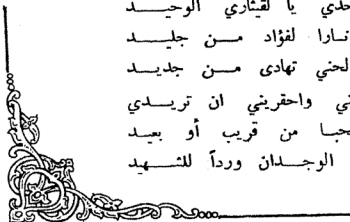 حدي يا لقيثاري الوحيد
نارا لفؤاد من جليد
لحني تهادى من جديد
ني واحقريني ان تريدي
حبا من قريب أو بعيد
الوجدان وردا للشهيد